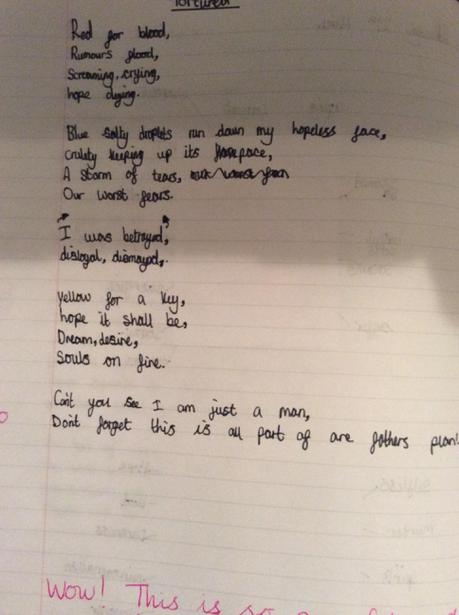 Tortured
Red for blood,
Rumours flood,
Screaming, crying,
hope dying.
Blue salty droplets run down my hopeless face,
cruelty keeping up its pace,
A storm of tears,
Our worst fears.
"I was betrayed,"
disloyal, dismayed,.
yellow for a key,
hope it shall be,
Dream, desire,
Souls on fire.
Can't you see I am just a man,
Don't forget this is all part of are fathers plan!
Wow! This is so